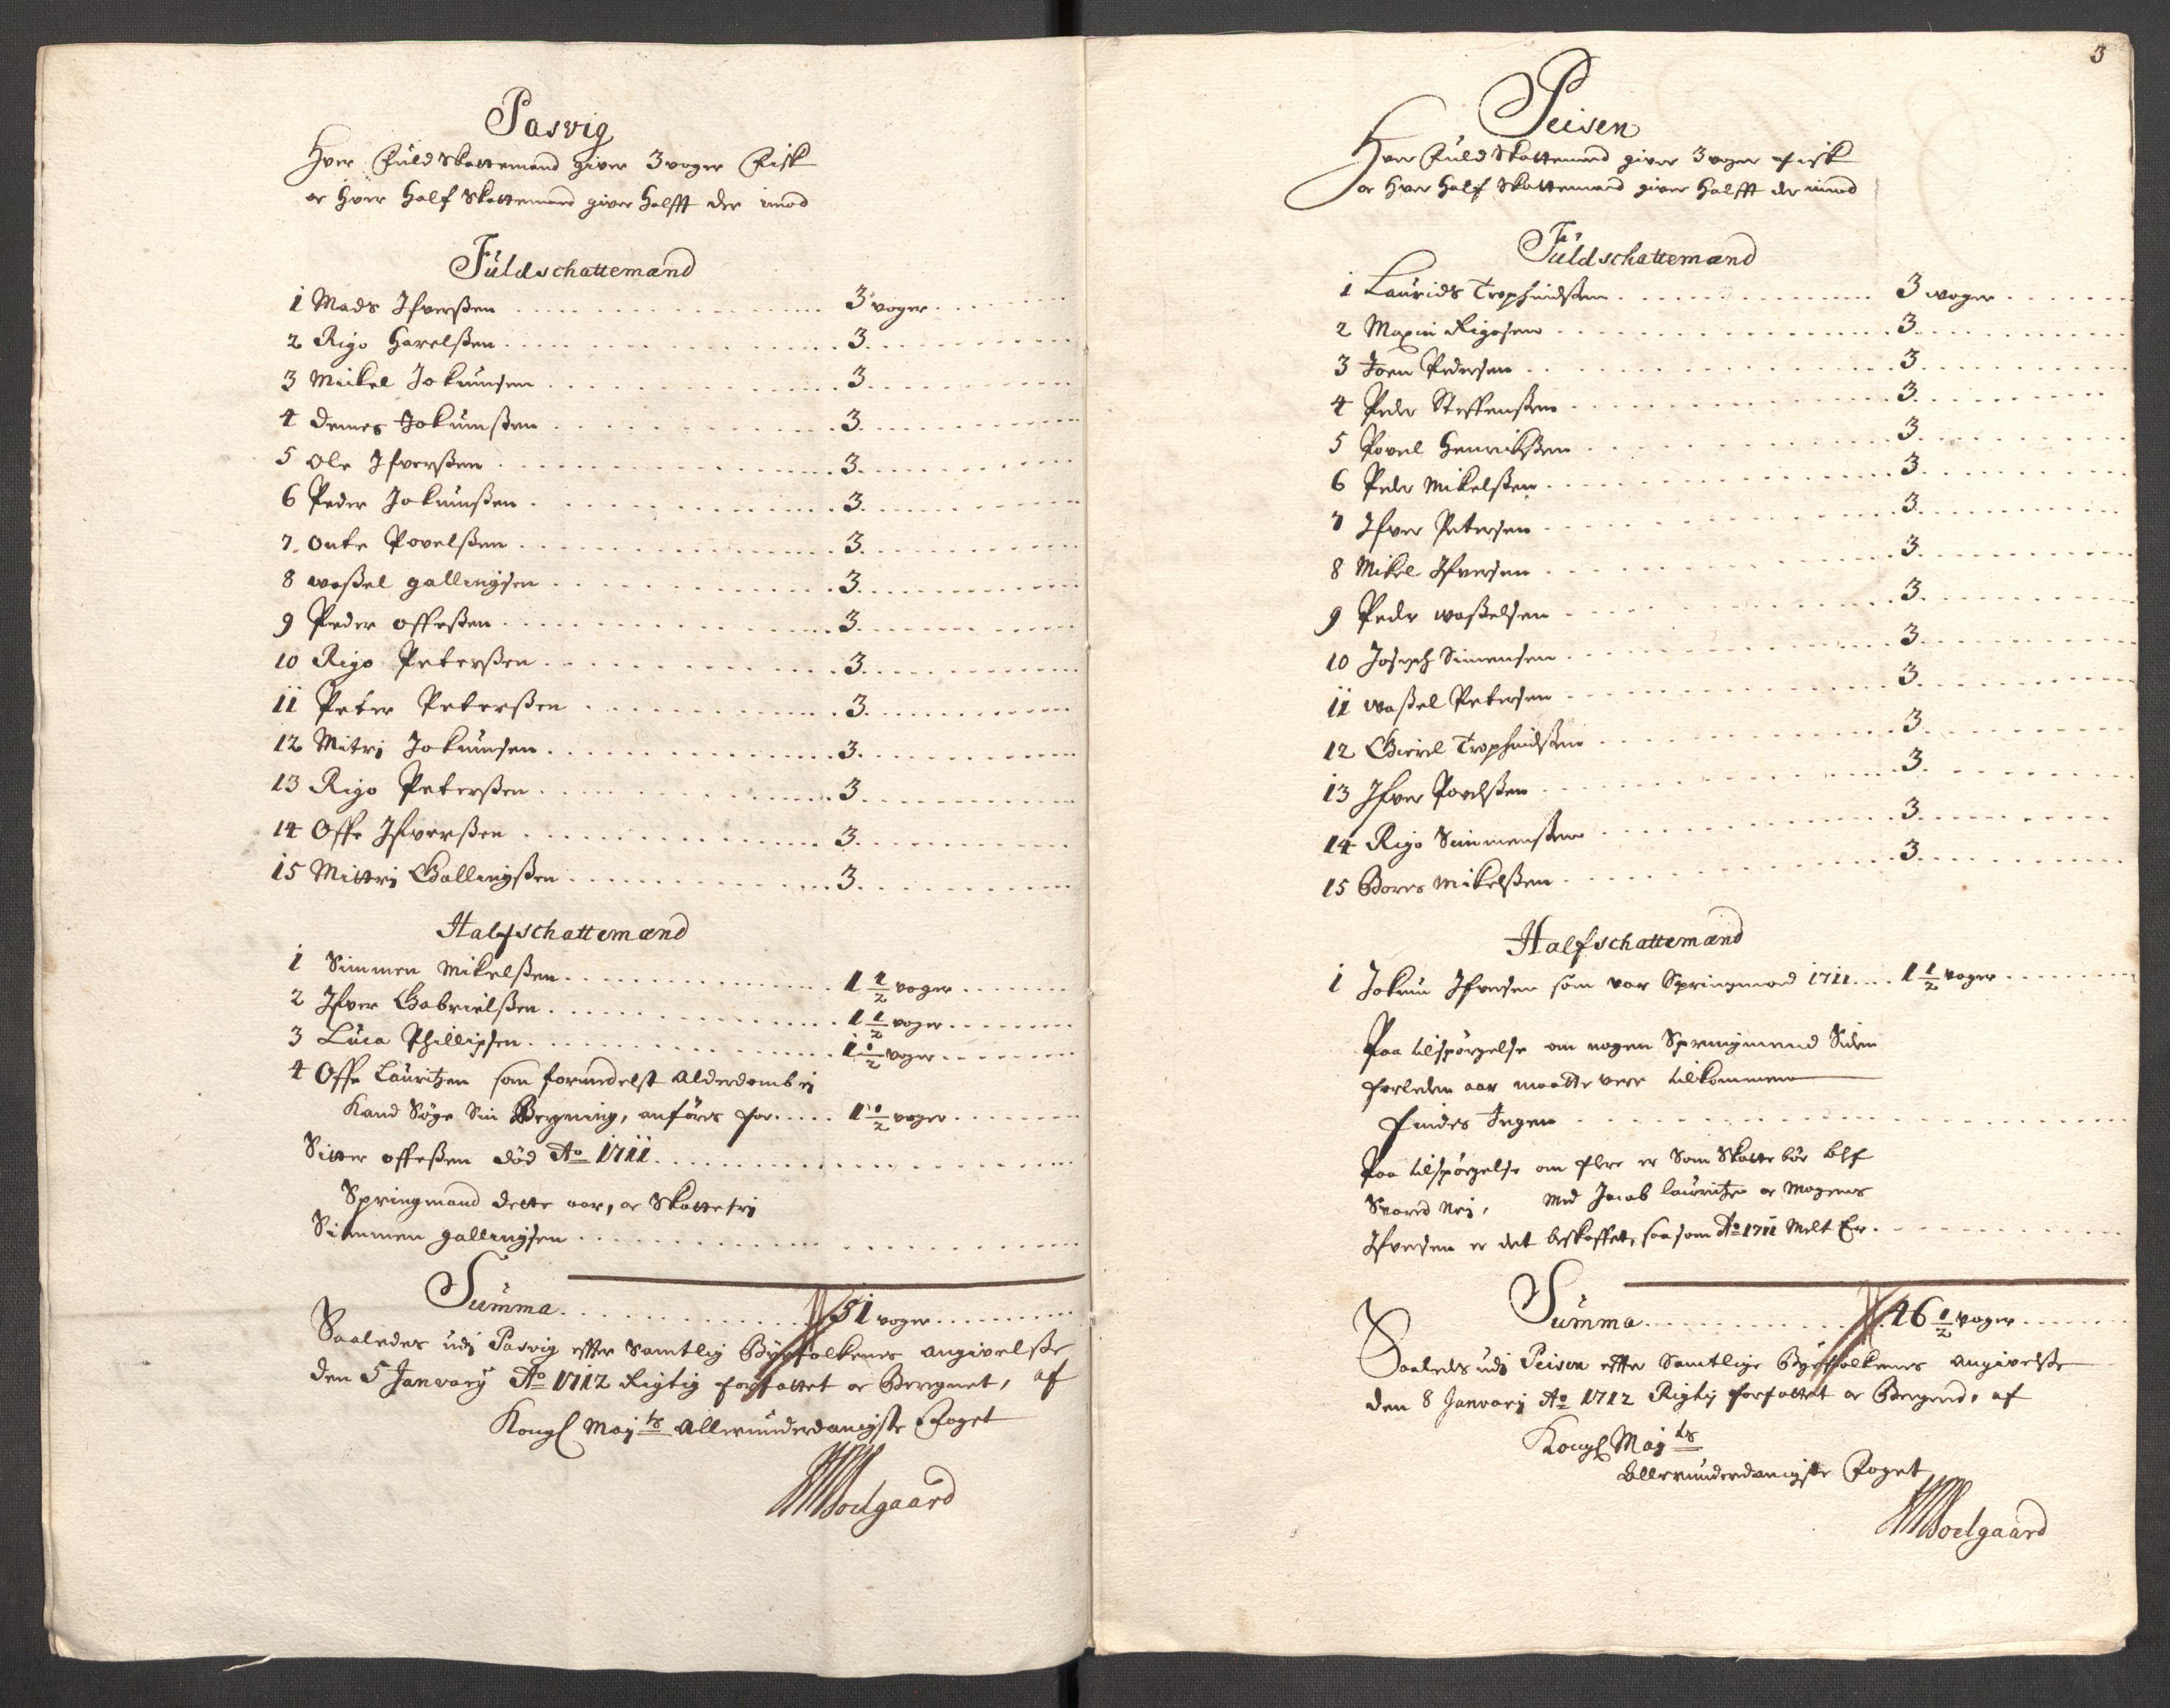 Pasvig
Hver Fuld Skattemand giver 3 voger Fisk
oc hver Half Skattemand giver Halfft der imod
Fuldschattemænd
1 Mads Ifverßen 3 voger
2 Rigo Harelßen 3
3 Mickel Jokumsen 3
4 Demes Jokumßen 3
5 Ole Ifverßen 3
6 Peder Jokumßen 3
7 Onke Povelßen 3
8 Waßel Gallingsen 3
9 Peder Offeßen 3
10 Rigo Peterßen 3
11 Peter Peterßen 3
12 Mitri Jokumsen 3
13 Rigo Peterßen 3
14 Offe Ifverßen 3
15 Mittri Gallingßen 3
Halfschattemænd
1 Simmen Mikelßen 1 1/2 voger
2 Ifver Gabrielßen 1 1/2 voger
3 Luca Phillipsen 1 1/2 voger
4 Offe Lauritzen som formedelst Alderdomb ej
Kand Søge Sin Bergning, anføris for 1 1/2 voger
Sitter Offeßen død Ao 1711
Springmand dette aar, oc Skattefri
Simmen Gallingsen
Summa 51 voger
Saaledes udj Pasvig effter Samtlig Byefolkenes angivelße
den 5 January Ao 1712 Rigtig forfattet oc Beregnet, af
Kongl Mayts Allerunderdanigste Foget
Soelgaard
3
Peisen
Hver Fuld Skattemand giver 3 voger Fisk
oc hver Half Skattemand giver Halfft der imod
Fuldschattemænd
1 Laurids Trophindßen 3 woger
2 Maxim Rigosen 3
3 Joen Pedersen 3
4 Peder Steffenßen 3
5 Povel Henrikßen 3
6 Peder Mikelßen 3
7 Ifver Petersen 3
8 Mikel Ifversen 3
9 Peder Waßelsen 3
10 Joseph Simensen 3
11 Waßel Petersen 3
12 Gavril Trophindßen 3
13 Ifver Povelßen 3
14 Rigo Simmenßen 3
15 Bores Mikelßen 3
Halfschattemænd
1 Jokum Ifversen som var Springmand 1711 1 1/2 voger
Paa tilspørgelse om nogen Springmænd Siden
forleden aar maatte vere tilkommen
findes Ingen
Paa tilspørgelse om flere er Som Skatte bør blf
Svared Nei, Med Jacob Lauritzen oc Mogens
Ifversen er det beskaffet, saasom Ao 1711 Melt Er
Summa 46 1/2 voger
Saaledes udj Peisen effter Samtlige Byefolkenes angivelße
den 8 Januarj Ao 1712 Rigtig forfattet oc Bergned, af
Kongl Mayts
Allerunderdanigste Foget
Soelgaard